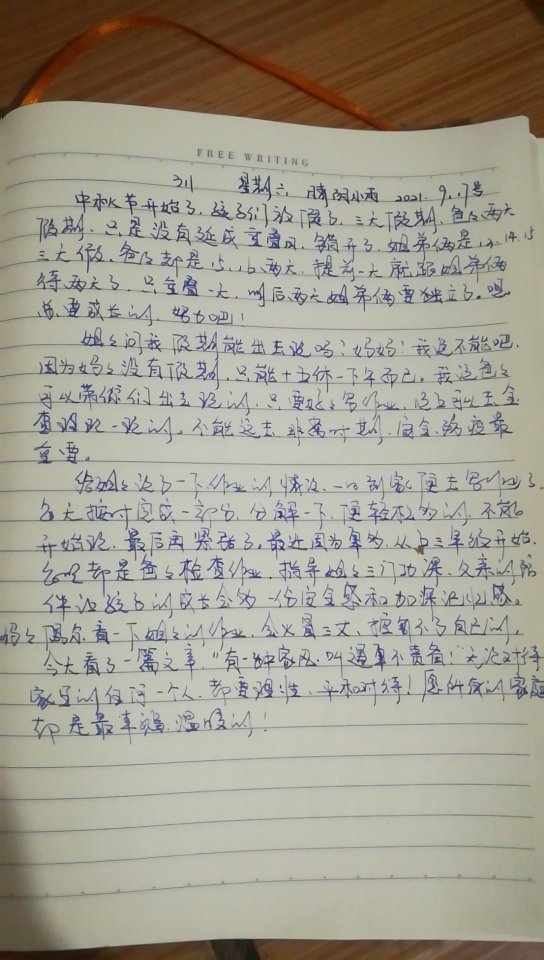 FREE WRITING
311 星期六 晴间小雨 2021.9.17号
中秋节开始了,孩子们放假了,三天假期,爸爸两天
假期,只是没有 成重叠的,错开了,姐弟俩是 14.15
三天假,爸爸却是15、16两天,提前一天 姐弟俩
待两天了,只重叠一天,则后两天姐弟俩要独立了。嗯
总要成长的,好力吧!
姐姐问我假期能出去玩吗?妈妈!我说不能吧,
因为妈妈没有假期,只能十五休一下午而已。我说爸爸
可以带你们出去玩的,只要好好写作业,还可以去
玩一玩的。不能远去,非常时期,安全、防疫最
重要。
给姐姐说了一下作业的情况,一回到家便去写作业了
每天按时完成一部分,分解一下,便轻松多的,不能
开始玩,最后再紧张了。最近因为 从上三年级开始,
都是爸爸检查作业,指导姐姐三门功课,父亲的陪
伴让孩子的成长会多一份安全感和加深记忆感。
妈妈偶尔看一下姐姐的作业,会火冒三丈,控制不了自己的,
今天看了一篇文章,“有一种家风,叫遇事不责备!”无论对待
家里的任何一个人,都要理性、平和对待!愿所有的家庭
都是最幸福、温暖的!